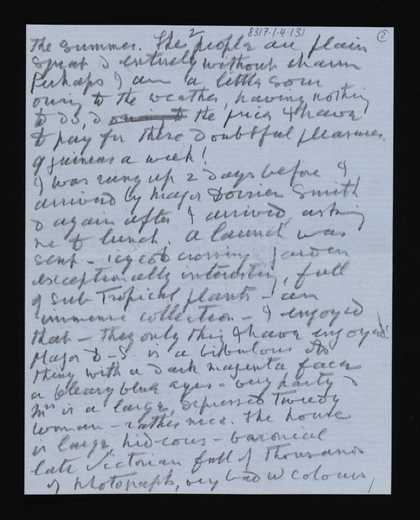 2
8317.1.4.131
2
The summer. The people are plain
& entirely without charm
Perhaps I am a little sour
owing to the weather, having nothing
to do, & the price I have
to pay for these doubtful pleasures.
9 guineas a week!
I was rung up 2 days before I
arrived by Major Dorrien Smith
& again after I arrived, asking
me to lunch. A launch was
sent - icy cold crossing. Garden
exceptionally interesting, full
of sub Tropical plants - an
immense collection - I enjoyed
that - the only thing I have enjoyed!
Major D-S. is a bibulous old
thing with a dark magenta face
& bleary blue eyes - very hearty &
Mrs is a large, depressed tweedy
woman - rather nice. The house
is large, hideous - baronial
late Victorian full of thousands
of photographs, very bad w colours,